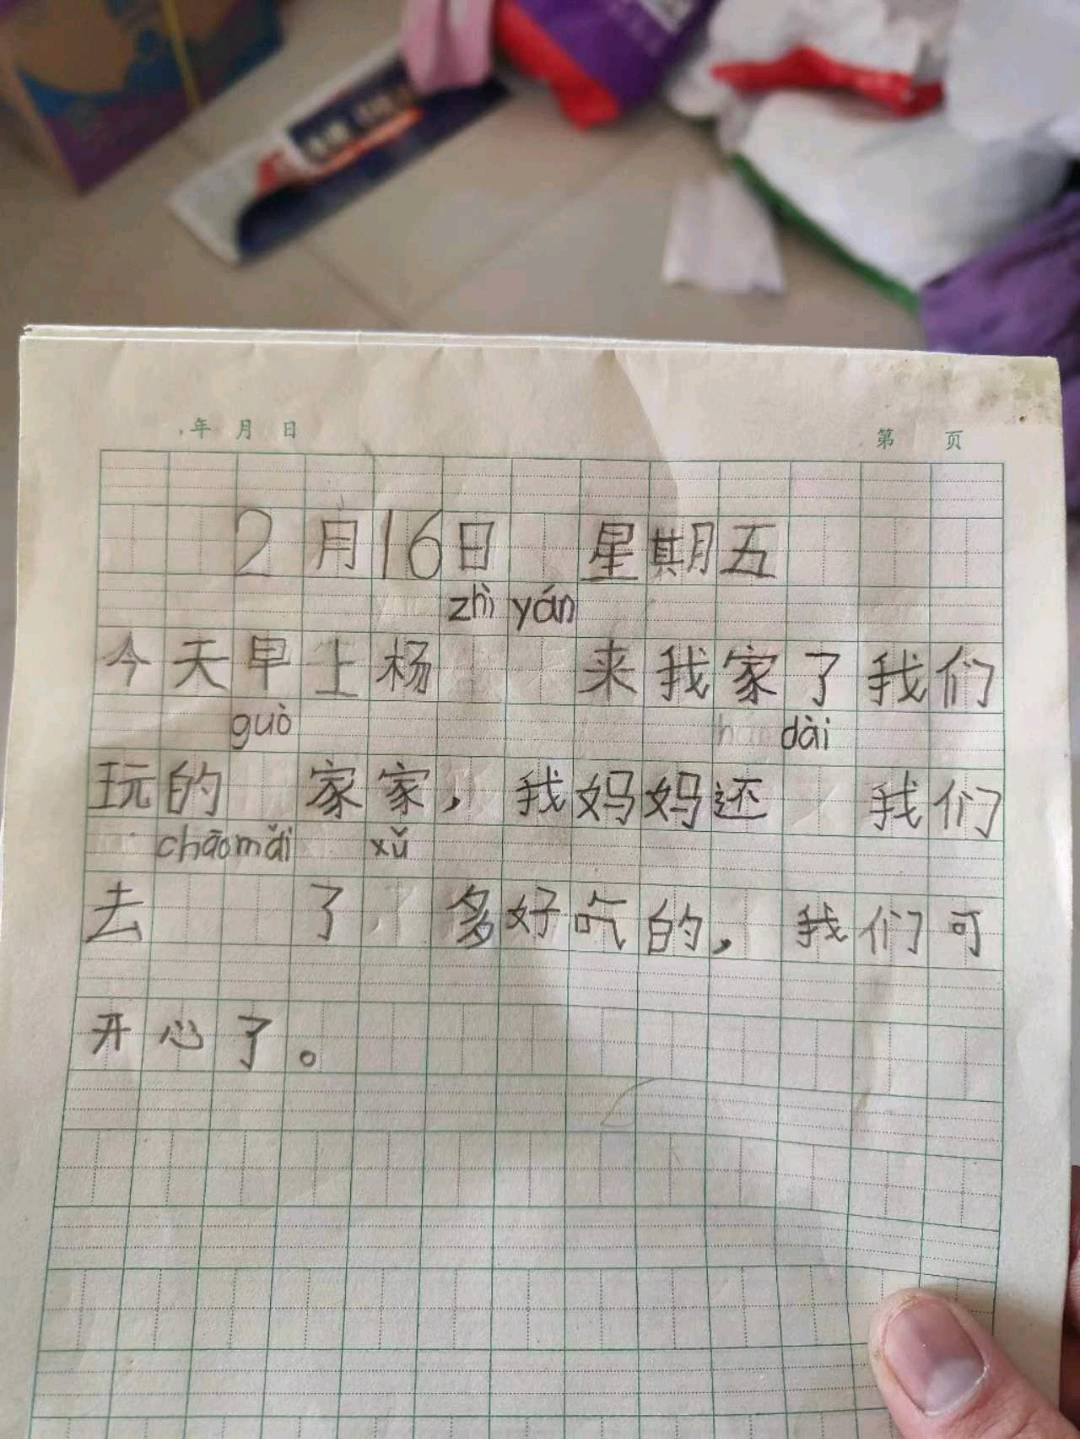 年 月 日
第 页
2月16日 星期五
zhì yán
今天早上杨 来我家了我们
guò dài
玩的 家家，我妈妈还 我们
chāo mǎi xǔ
去 了 多好吃的，我们可
开心了。